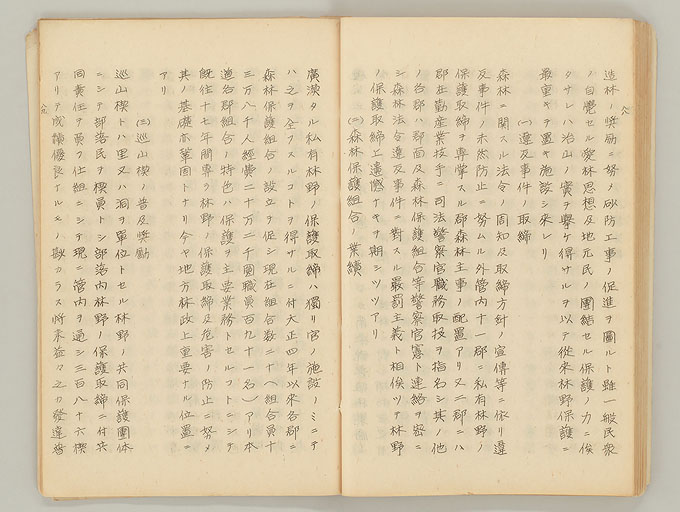 造林ノ奨励ニ努メ砂防工事ノ促進ヲ圖ルト雖一般民衆
ノ自覺セル愛林思想及地元民ノ團結セル保護ノ力ニ俟
タサレハ治山ノ實ヲ擧ケ得サルヲ以テ從來林野保護ニ
最重キヲ置キ施設シ來レリ
(一)違反事件ノ取締
森林ニ関スル法令ノ周知及取締方針ノ宣傳等ニ依リ違
反事件ノ未然防止ニ努ムル外管内十一郡ニ私有林野ノ
保護取締ヲ専掌スル郡森林主事ノ配置アリ又二郡ニハ
郡在勤産業技手ニ司法警察官職務取扱ヲ指名シ其ノ他
ノ各郡ハ郡面及森林保護組合等警察官憲ト連絡ヲ密ニ
シ森林法令違反事件ニ對スル嚴罰主義ト相俟ツテ林野
ノ保護取締上遺憾ナキヲ期シツツアリ
(二)森林保護組合ノ業績
廣漠タル私有林野ノ保護取締ハ獨リ官ノ施設ノミニテ
ハ之ヲ全フスルコトヲ得サルニ付大正四年以來各郡ニ
森林保護組合ノ設立ヲ促シ現在組合数二十(組合員十
三万八千人經費二十万二千圓職員百九十一名)アリ本
道各郡組合ノ特色ハ保護ヲ主要業務トセルコトニシテ
既往十七年間専ラ林野ノ保護取締及危害ノ防止ニ努メ
其ノ基礎亦鞏固トナリ今ヤ地方林政上重要ナル位置ニ
アリ
(三)巡山楔ノ普及奨励
巡山楔トハ里又ハ洞ヲ單位トセル林野ノ共同保護團体
ニシテ部落民ヲ楔員トシ部落内林野ノ保護取締ニ付共
同責任ヲ負フ仕組ニシテ現ニ管内ヲ通シ三百八十六楔
アリテ成績優良ナルモノ尠カラス將来益々之カ發達普